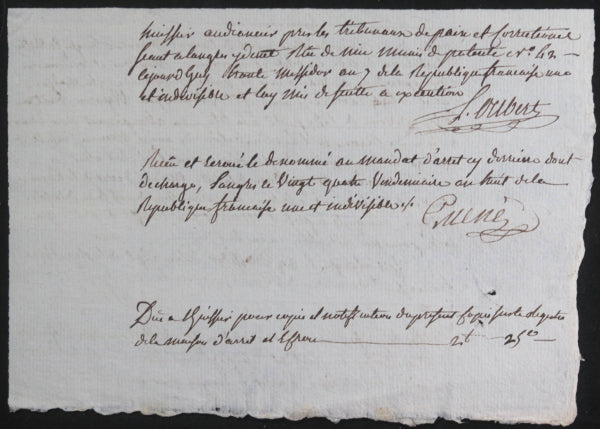 huissier audiencier pres les tribunaux de paix et correctionnel
seant a langres y demt muni de patente no 42
cejourd'huy trente messidor an 7 de la Republique francaise une
et indivisible et lay mis de suitte a execution
Recu et ecroué le denommé au mandat d'arret cy derriere dont
decharge, Langres le Vingt quatre Vendemiaire an huit de la
Republique francaise une et indivisible
Du a l'huissier pour copie et notification du present sur le Registre
de la maison d'arret et Ecrou 2# 25c